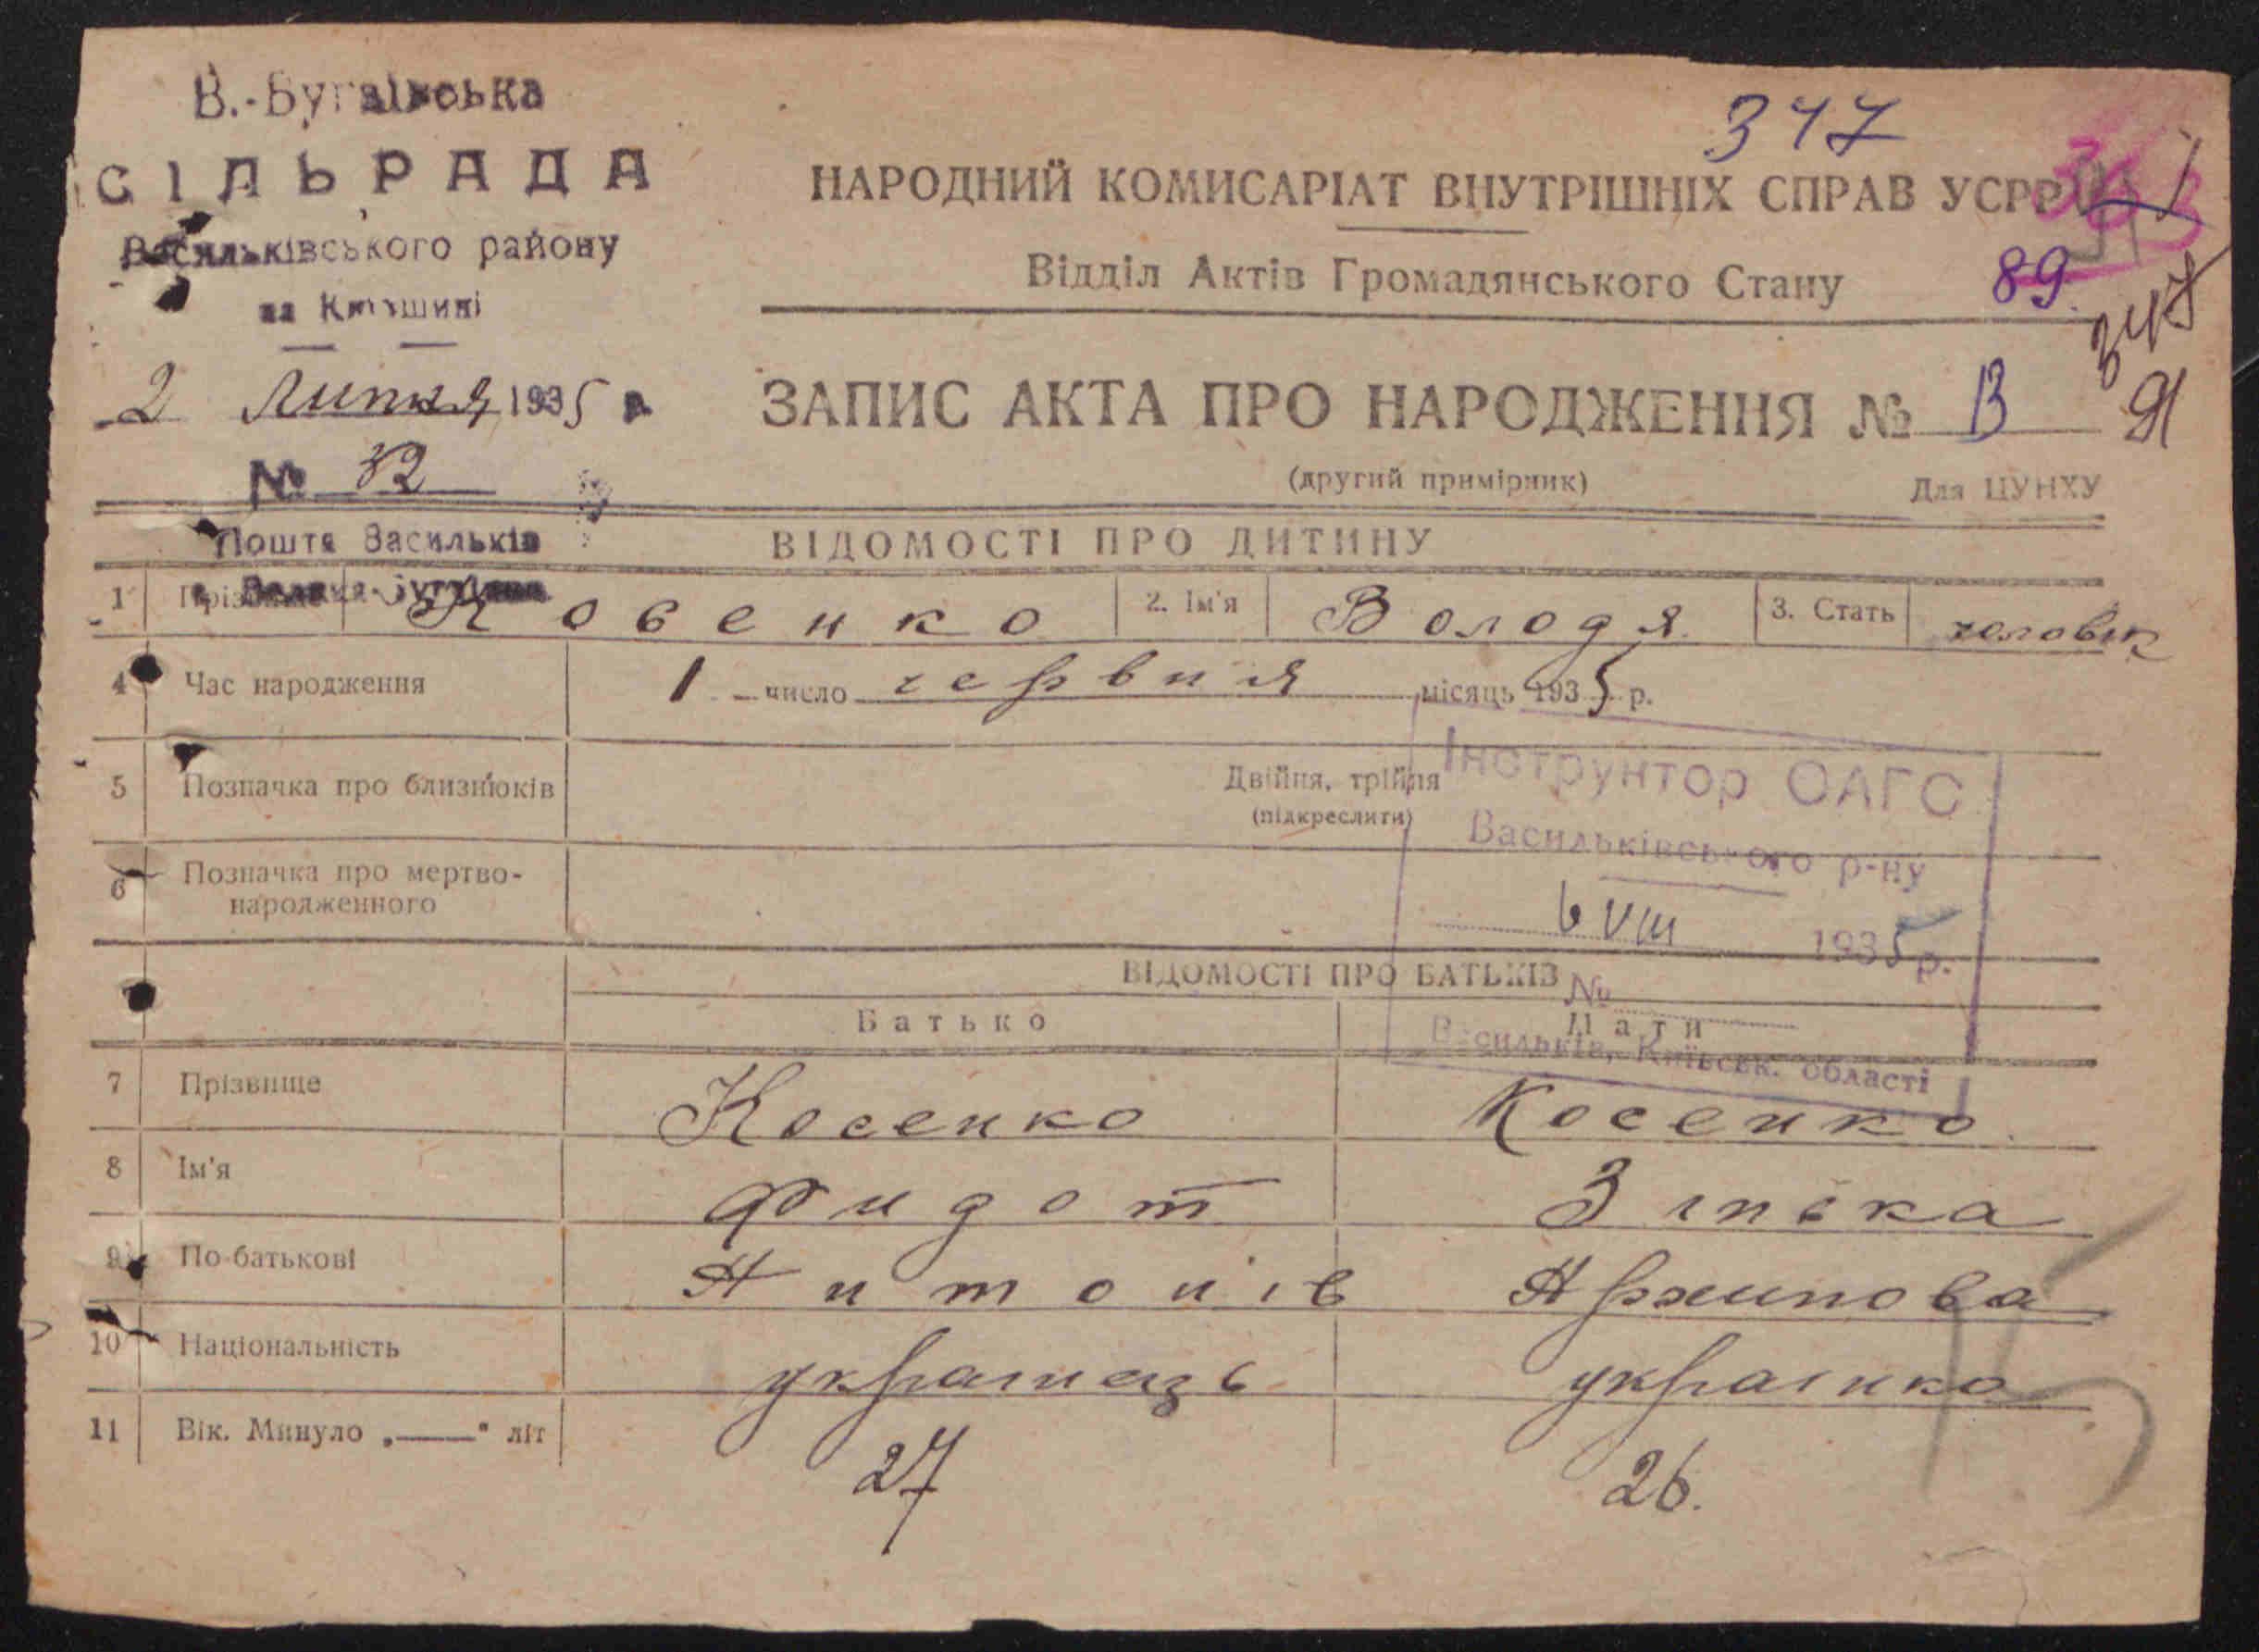 В.-Бугаївська
СІЛЬРАДА
Васильківського району
на Київщині
2 Липня 1935 р.
№ 82
Пошта Васильків
с. Велика-Бугаївка
347
НАРОДНИЙ КОМИСАРІАТ ВНУТРІШНІХ СПРАВ УСРР
Відділ Актів Громадянського Стану
89.
347
ЗАПИС АКТА ПРО НАРОДЖЕННЯ № 13
91
(другий примірник)
Для ЦУНХУ
ВІДОМОСТІ ПРО ДИТИНУ
1 Прізвище Косенко 2. Ім'я Володя 3. Стать чоловік
4 Час народження 1 число червня місяць 1935 р.
5 Позначка про близнюків Двійня, трійня
(підкреслити)
6 Позначка про мертво-
народженного
Інструктор ОАГС
Васильківського р-ну
6 VIII 1935 р.
№
Васильків, Київськ. області
ВІДОМОСТІ ПРО БАТЬКІВ
Батько Мати
7 Прізвище Косенко Косенко
8 Ім'я Фидот Зінька
9 По батькові Антонів Архипова
10 Національність украінець украінка
11 Вік. Минуло „——" літ 27 26.